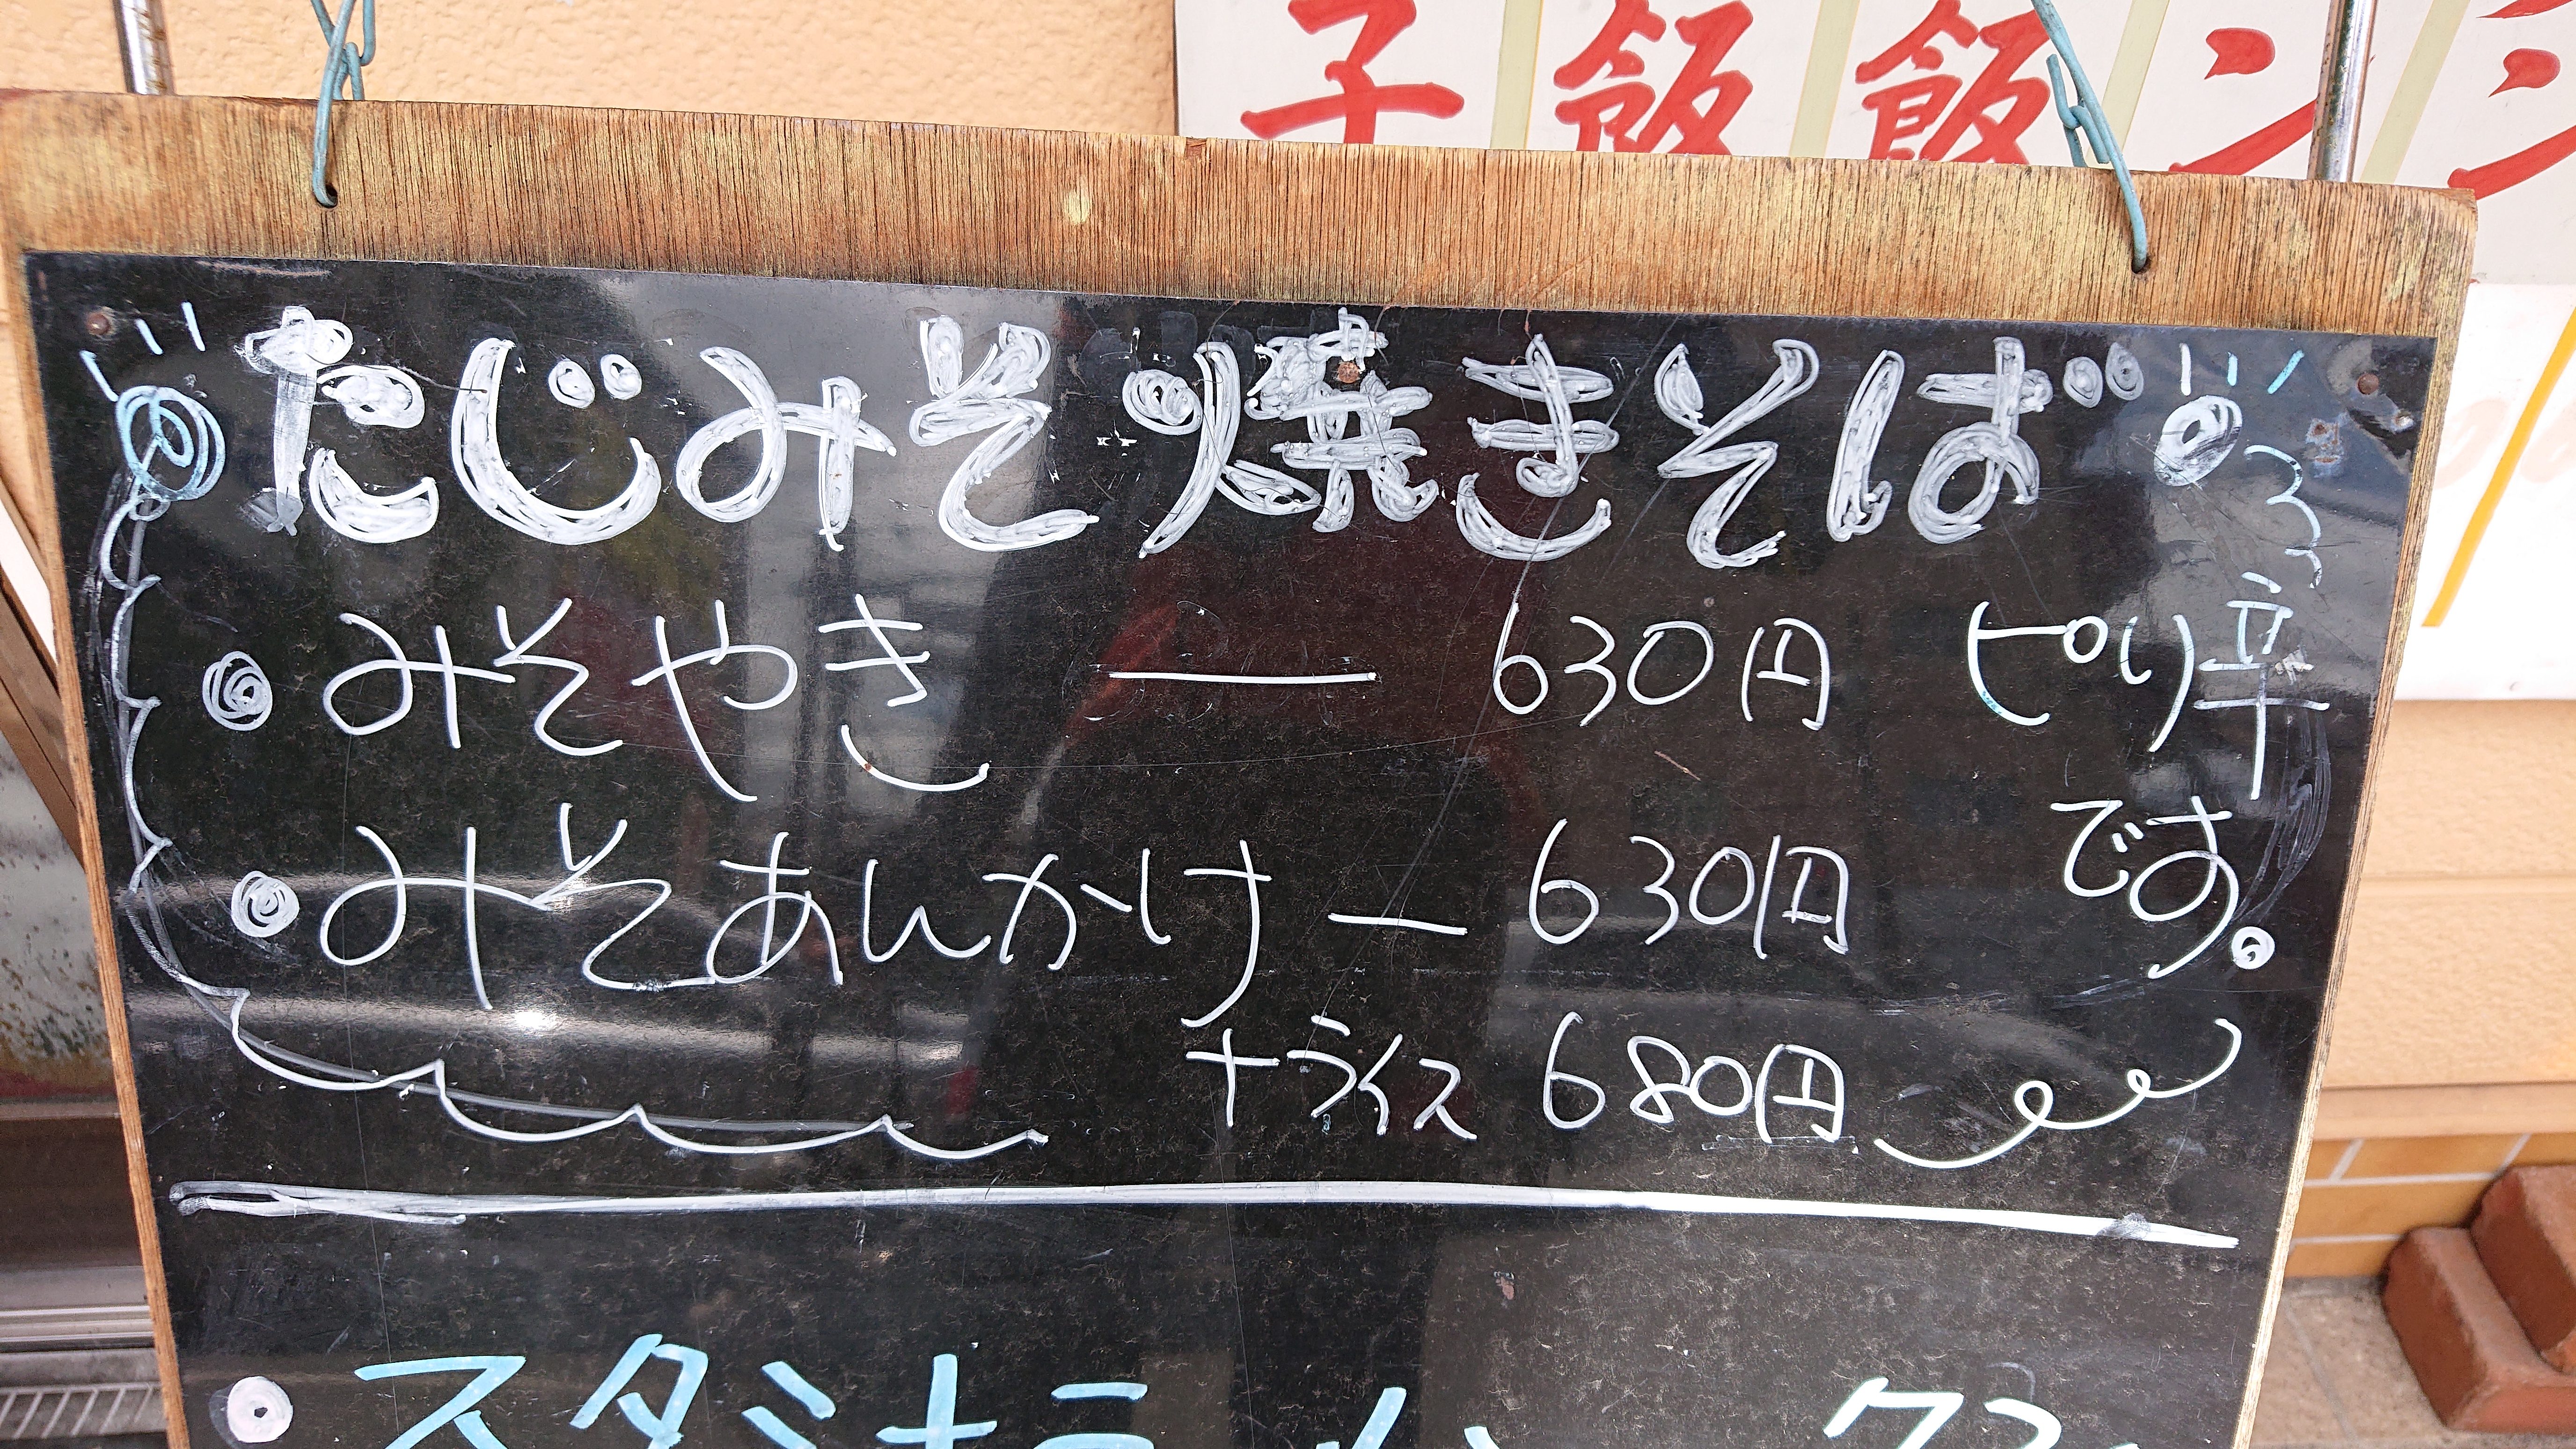 子 飯 飯 ン
たじみそ焼きそば
みそやき ー 630円 ピリ辛
です。
みそあんかけ ー 630円
+ライス 680円
スタミナラーメン